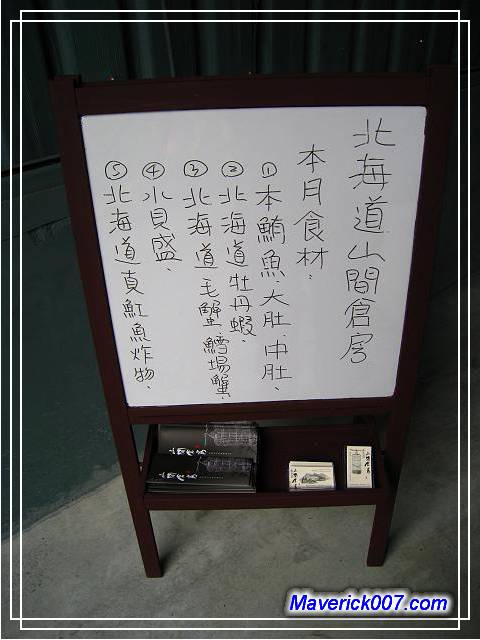 北海道山間倉房
本月食材、
①本鮪魚、大肚、中肚、
②北海道牡丹蝦、
③北海道毛蟹、鱈場蟹、
④水貝盛、
⑤北海道真魟魚炸物、
山間倉房
Maverick007.com